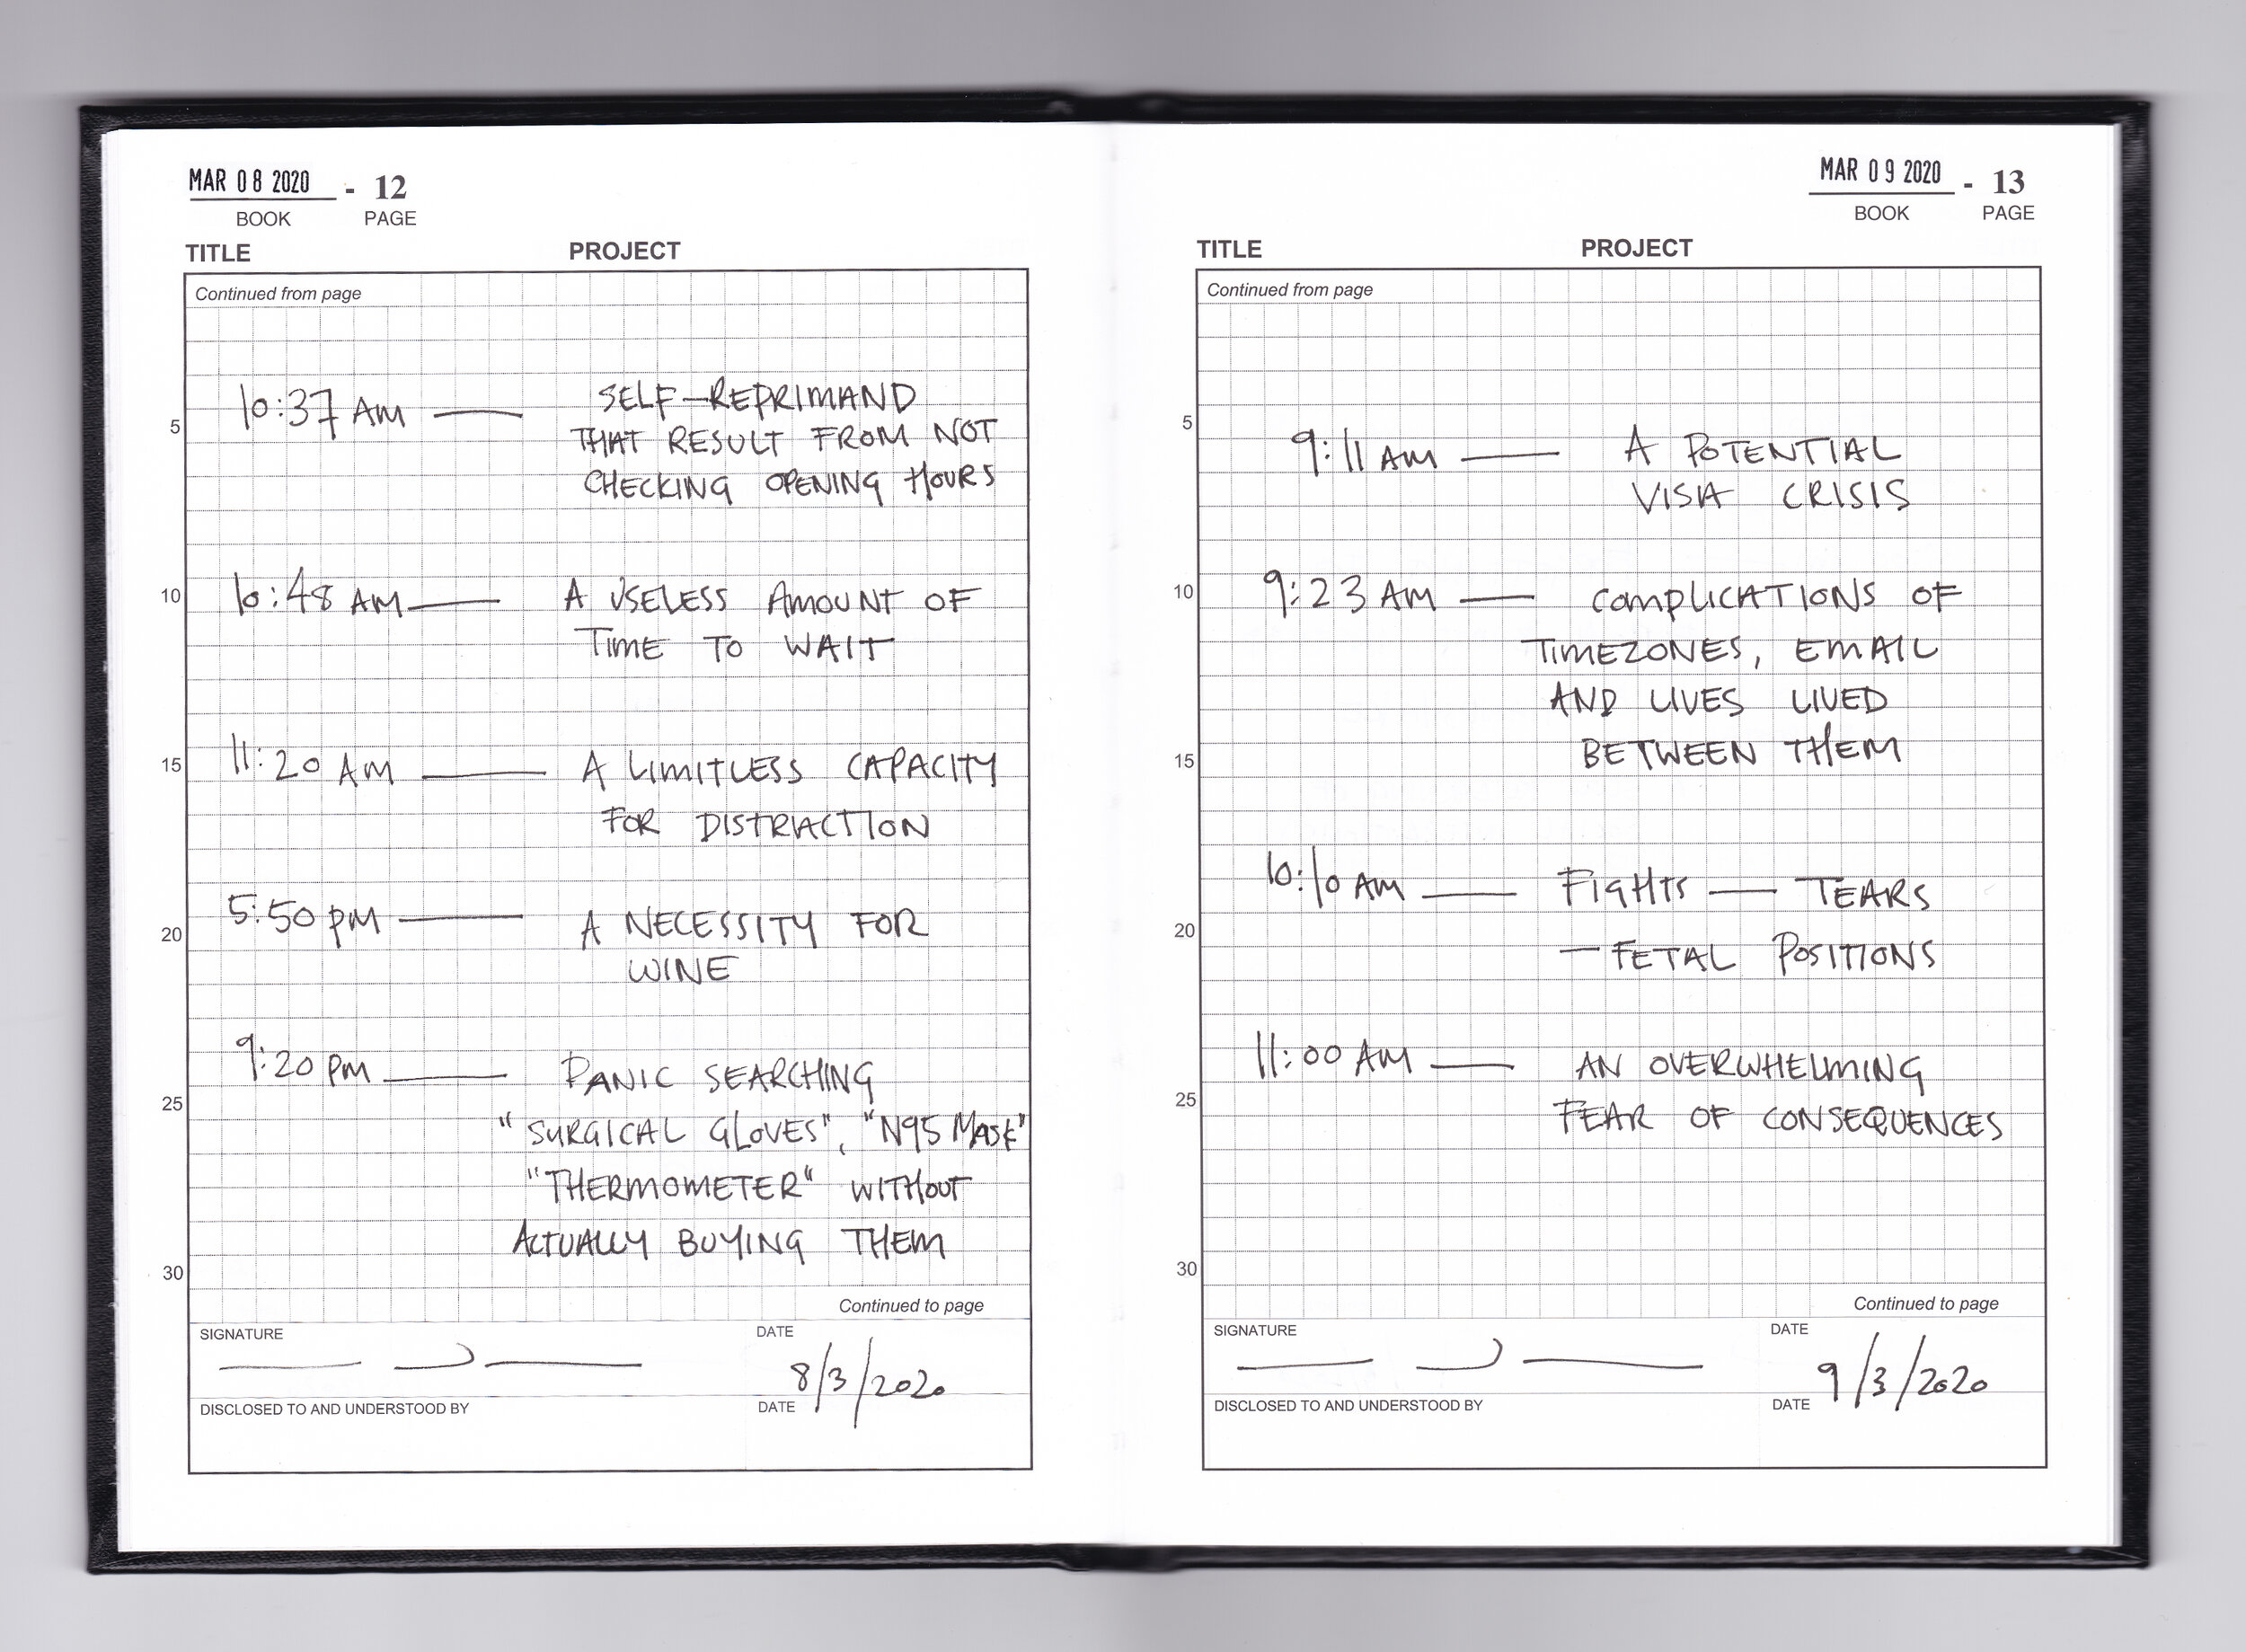 MAR 08 2020 - 12
BOOK PAGE
TITLE PROJECT
Continued from page
10:37 AM — SELF-REPRIMAND
5 THAT RESULT FROM NOT
CHECKING OPENING HOURS
10 10:48 AM — A USELESS AMOUNT OF
TIME TO WAIT
15 11:20 AM — A LIMITLESS CAPACITY
FOR DISTRACTION
20 5:50 PM — A NECESSITY FOR
WINE
9:20 PM — PANIC SEARCHING
25 "SURGICAL GLOVES", "N95 MASK"
"THERMOMETER" WITHOUT
ACTUALLY BUYING THEM
30
Continued to page
SIGNATURE DATE
8/3/2020
DISCLOSED TO AND UNDERSTOOD BY DATE
MAR 09 2020 - 13
BOOK PAGE
TITLE PROJECT
Continued from page
5 9:11 AM — A POTENTIAL
VISA CRISIS
10 9:23 AM — COMPLICATIONS OF
TIMEZONES, EMAIL
AND LIVES LIVED
15 BETWEEN THEM
10:10 AM — FIGHTS — TEARS
20 — FETAL POSITIONS
11:00 AM — AN OVERWHELMING
25 FEAR OF CONSEQUENCES
30
Continued to page
SIGNATURE DATE
9/3/2020
DISCLOSED TO AND UNDERSTOOD BY DATE